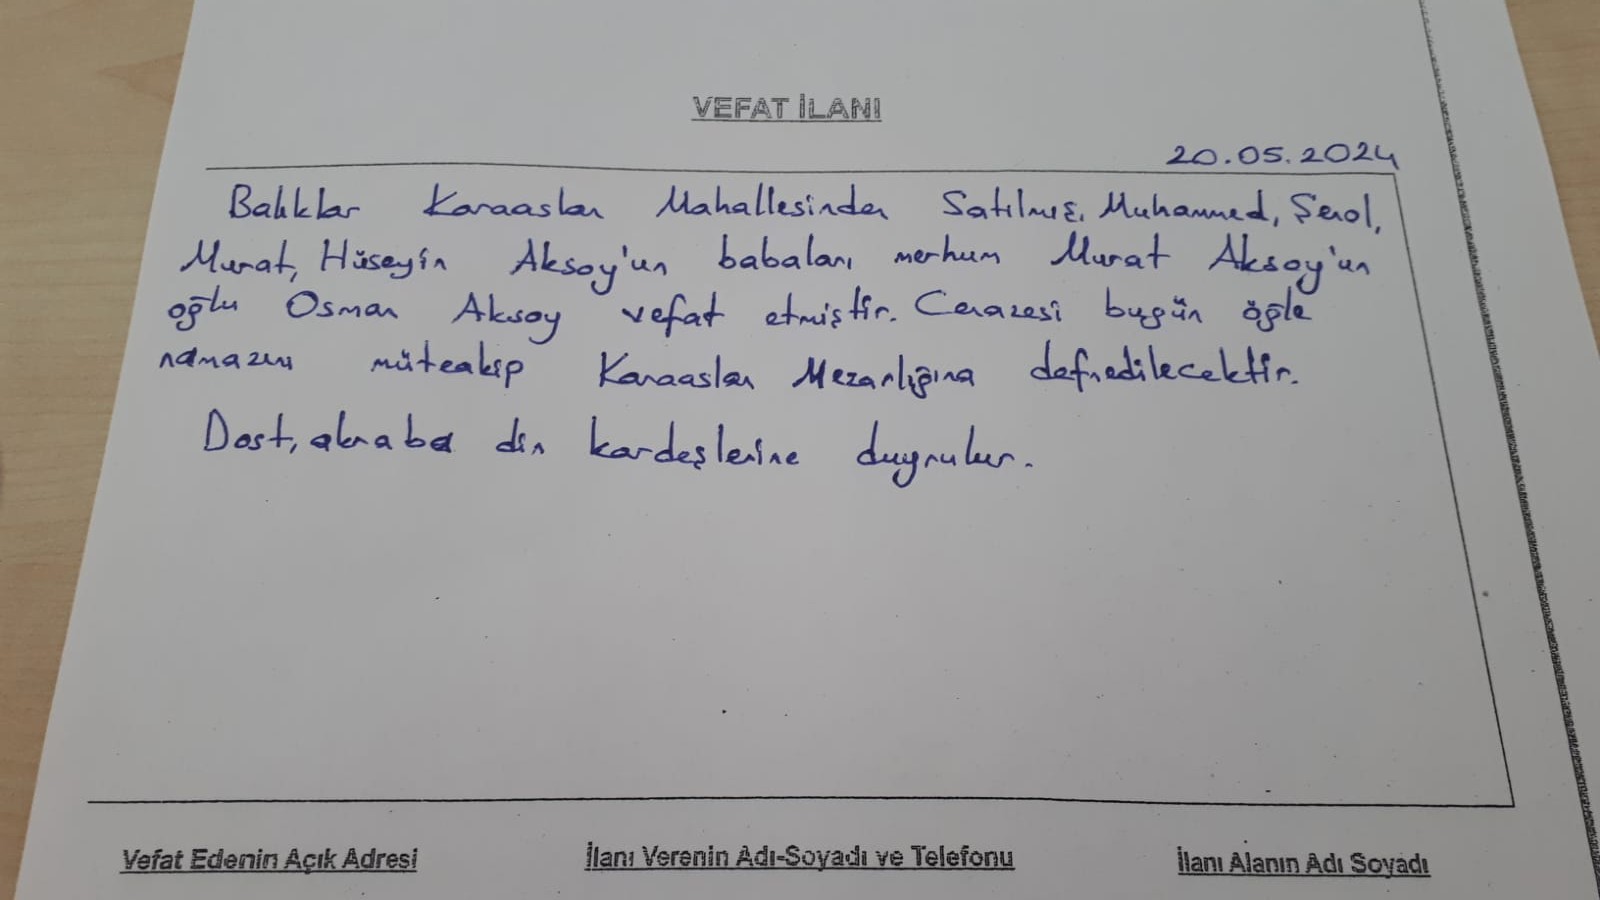 VEFAT İLANI
20.05.2024
Balıklar Karaaslan Mahallesinden Satılmış, Muhammed, Şenol,
Murat, Hüseyin Aksoy'un babaları merhum Murat Aksoy'un
oğlu Osman Aksoy vefat etmiştir. Cenazesi bugün öğle
namazını müteakip Karaaslan Mezarlığına defnedilecektir.
Dost, akraba din kardeşlerine duyrulur.
Vefat Edenin Açık Adresi İlanı Verenin Adı-Soyadı ve Telefonu İlanı Alanın Adı Soyadı